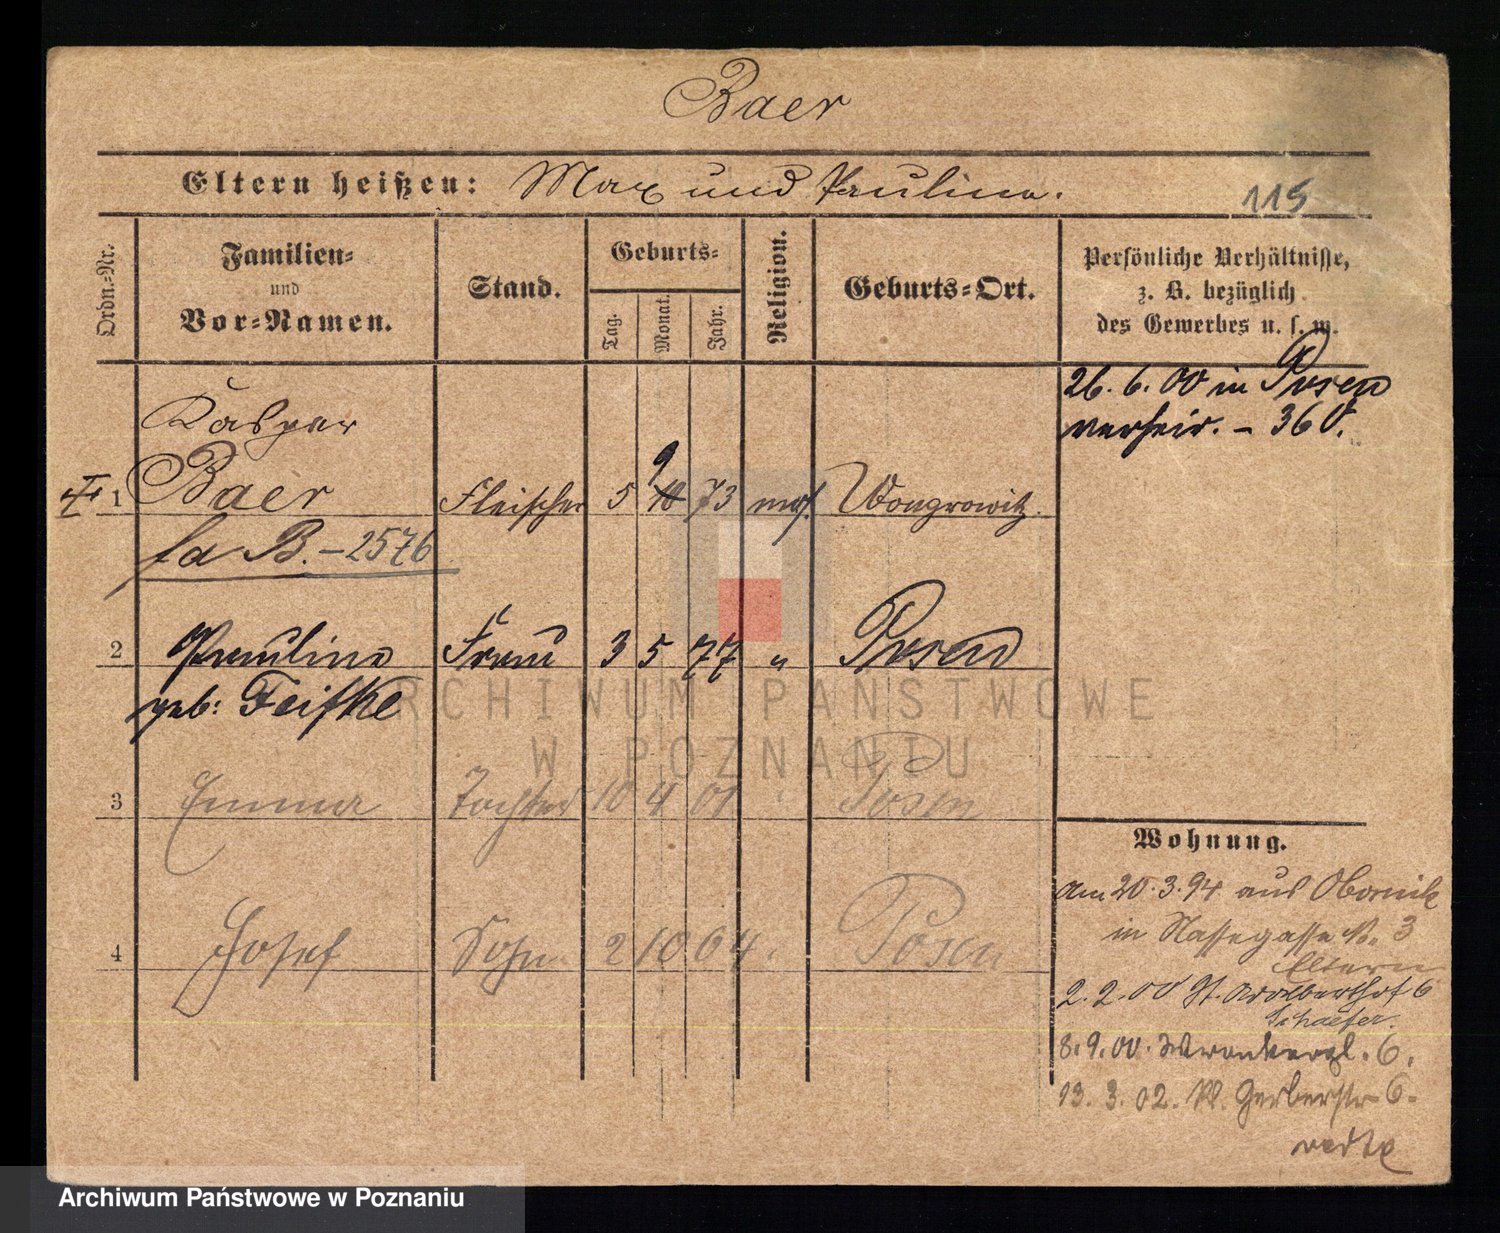 Baer
Eltern heißen: Max und Pauline.
115
Ordn.-Nr.
Familien-
und
Vor-Namen.
Stand.
Geburts-
Tag.
Monat.
Jahr.
Religion.
Geburts-Ort.
Persönliche Verhältnisse,
z. B. bezüglich
des Gewerbes u. s. w.
26. 6. 00 in Posen
verheir. - 360.
Kasper
1 Baer Fleischer 5 10 9 73 mos. Wongrowitz.
fa B. - 2576
2 Pauline Frau 3 5 77 " Posen
geb: Feifke
3 Emma Tochter 10 4 01 " Posen
4 Josef Sohn 2 10 04. Posen
Wohnung.
Am 20.3.94. aus Obornik
in Nassegasse N. 3
Eltern
2.2.00 St. Adalbertstr 6
Schaefer.
8.9.00. Wronkerpl. 6.
13.3.02. W. Gerberstr 6.
ARCHIWUM PAŃSTWOWE
W POZNANIU
Archiwum Państwowe w Poznaniu